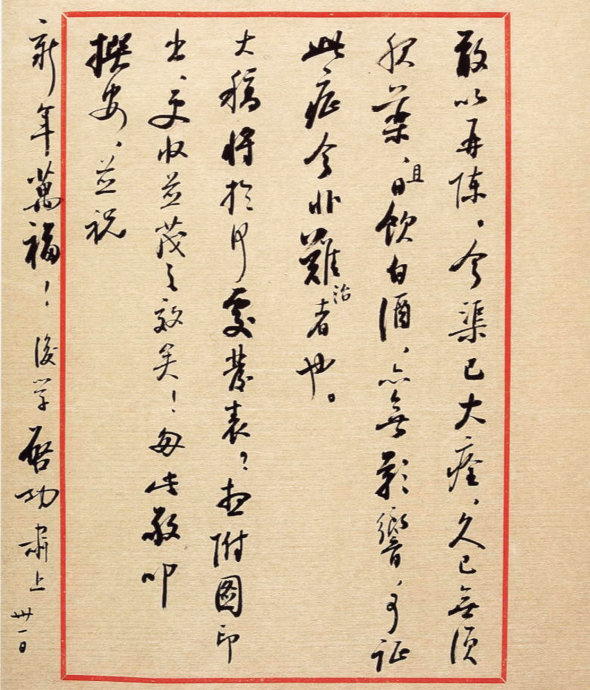 敢以再陳。今渠已大痊，久已無須
服藥，且日飲白酒，亦無影響，可証
此症今非難治者也。
大稿將於何處發表？如附圖印
出，更收並茂之效矣！匆此敬叩
撰安，並祝
新年萬福！ 後學啓功肅上 卅一日